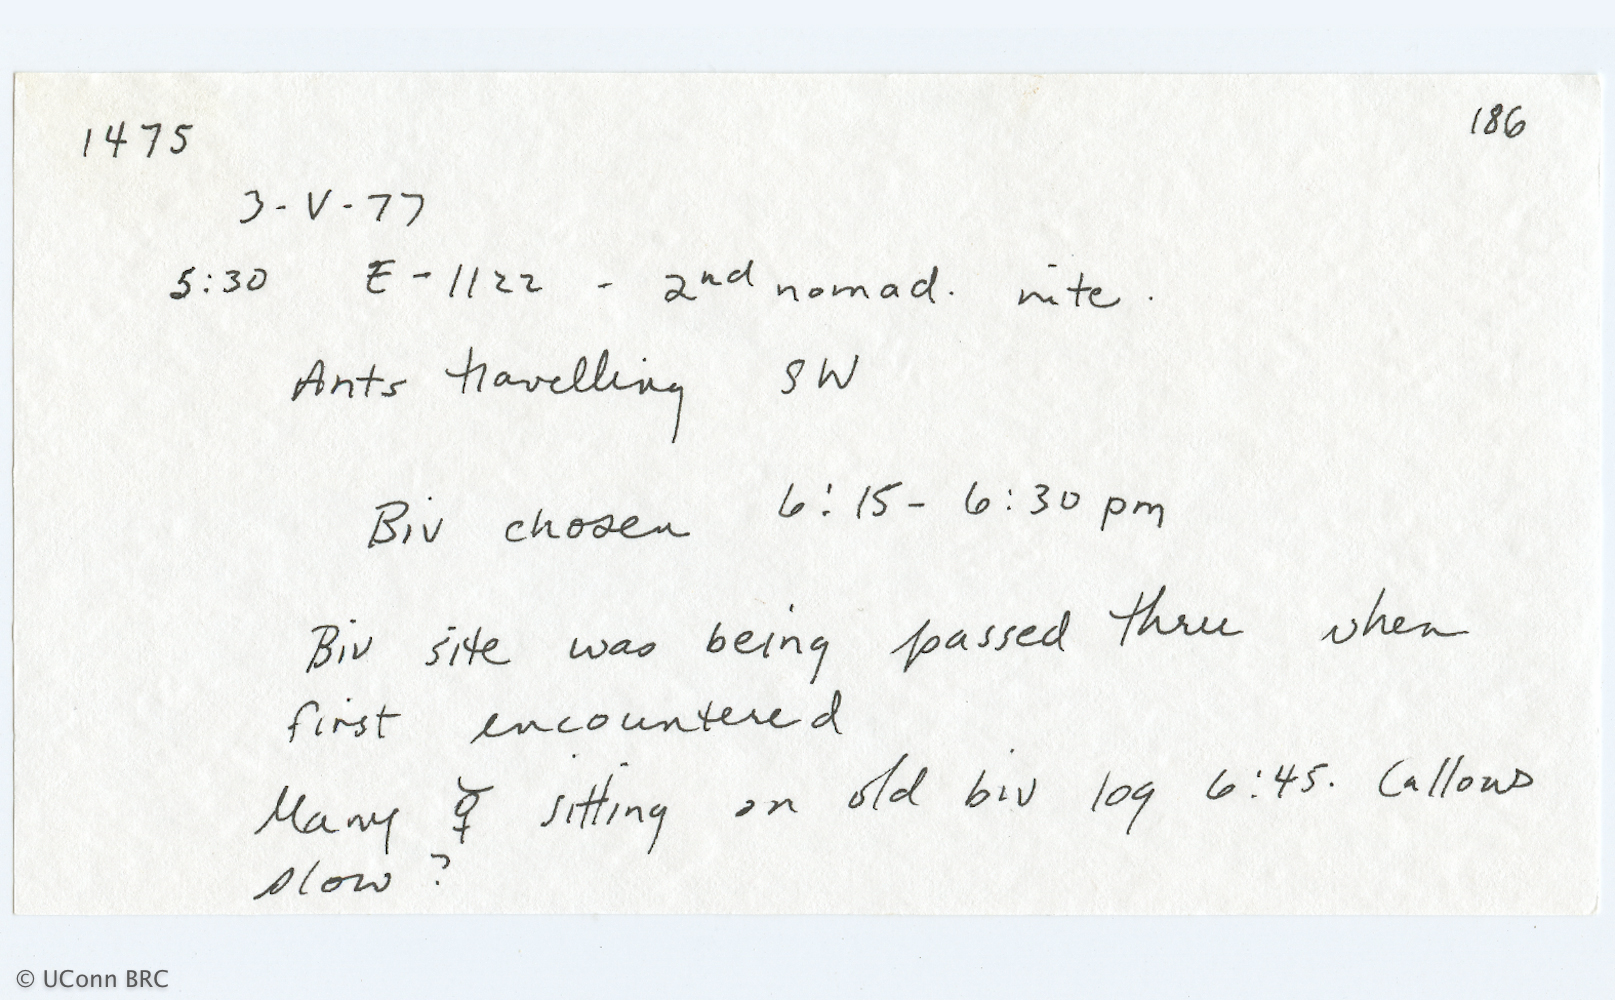 1475
186
3-V-77
5:30 E-1122 - 2nd nomad. nite.
Ants travelling SW
Biv chosen 6:15-6:30 pm
Biv site was being passed thru when
first encountered
Many ☿ sitting on old biv log 6:45. Callows
slow?
© UConn BRC